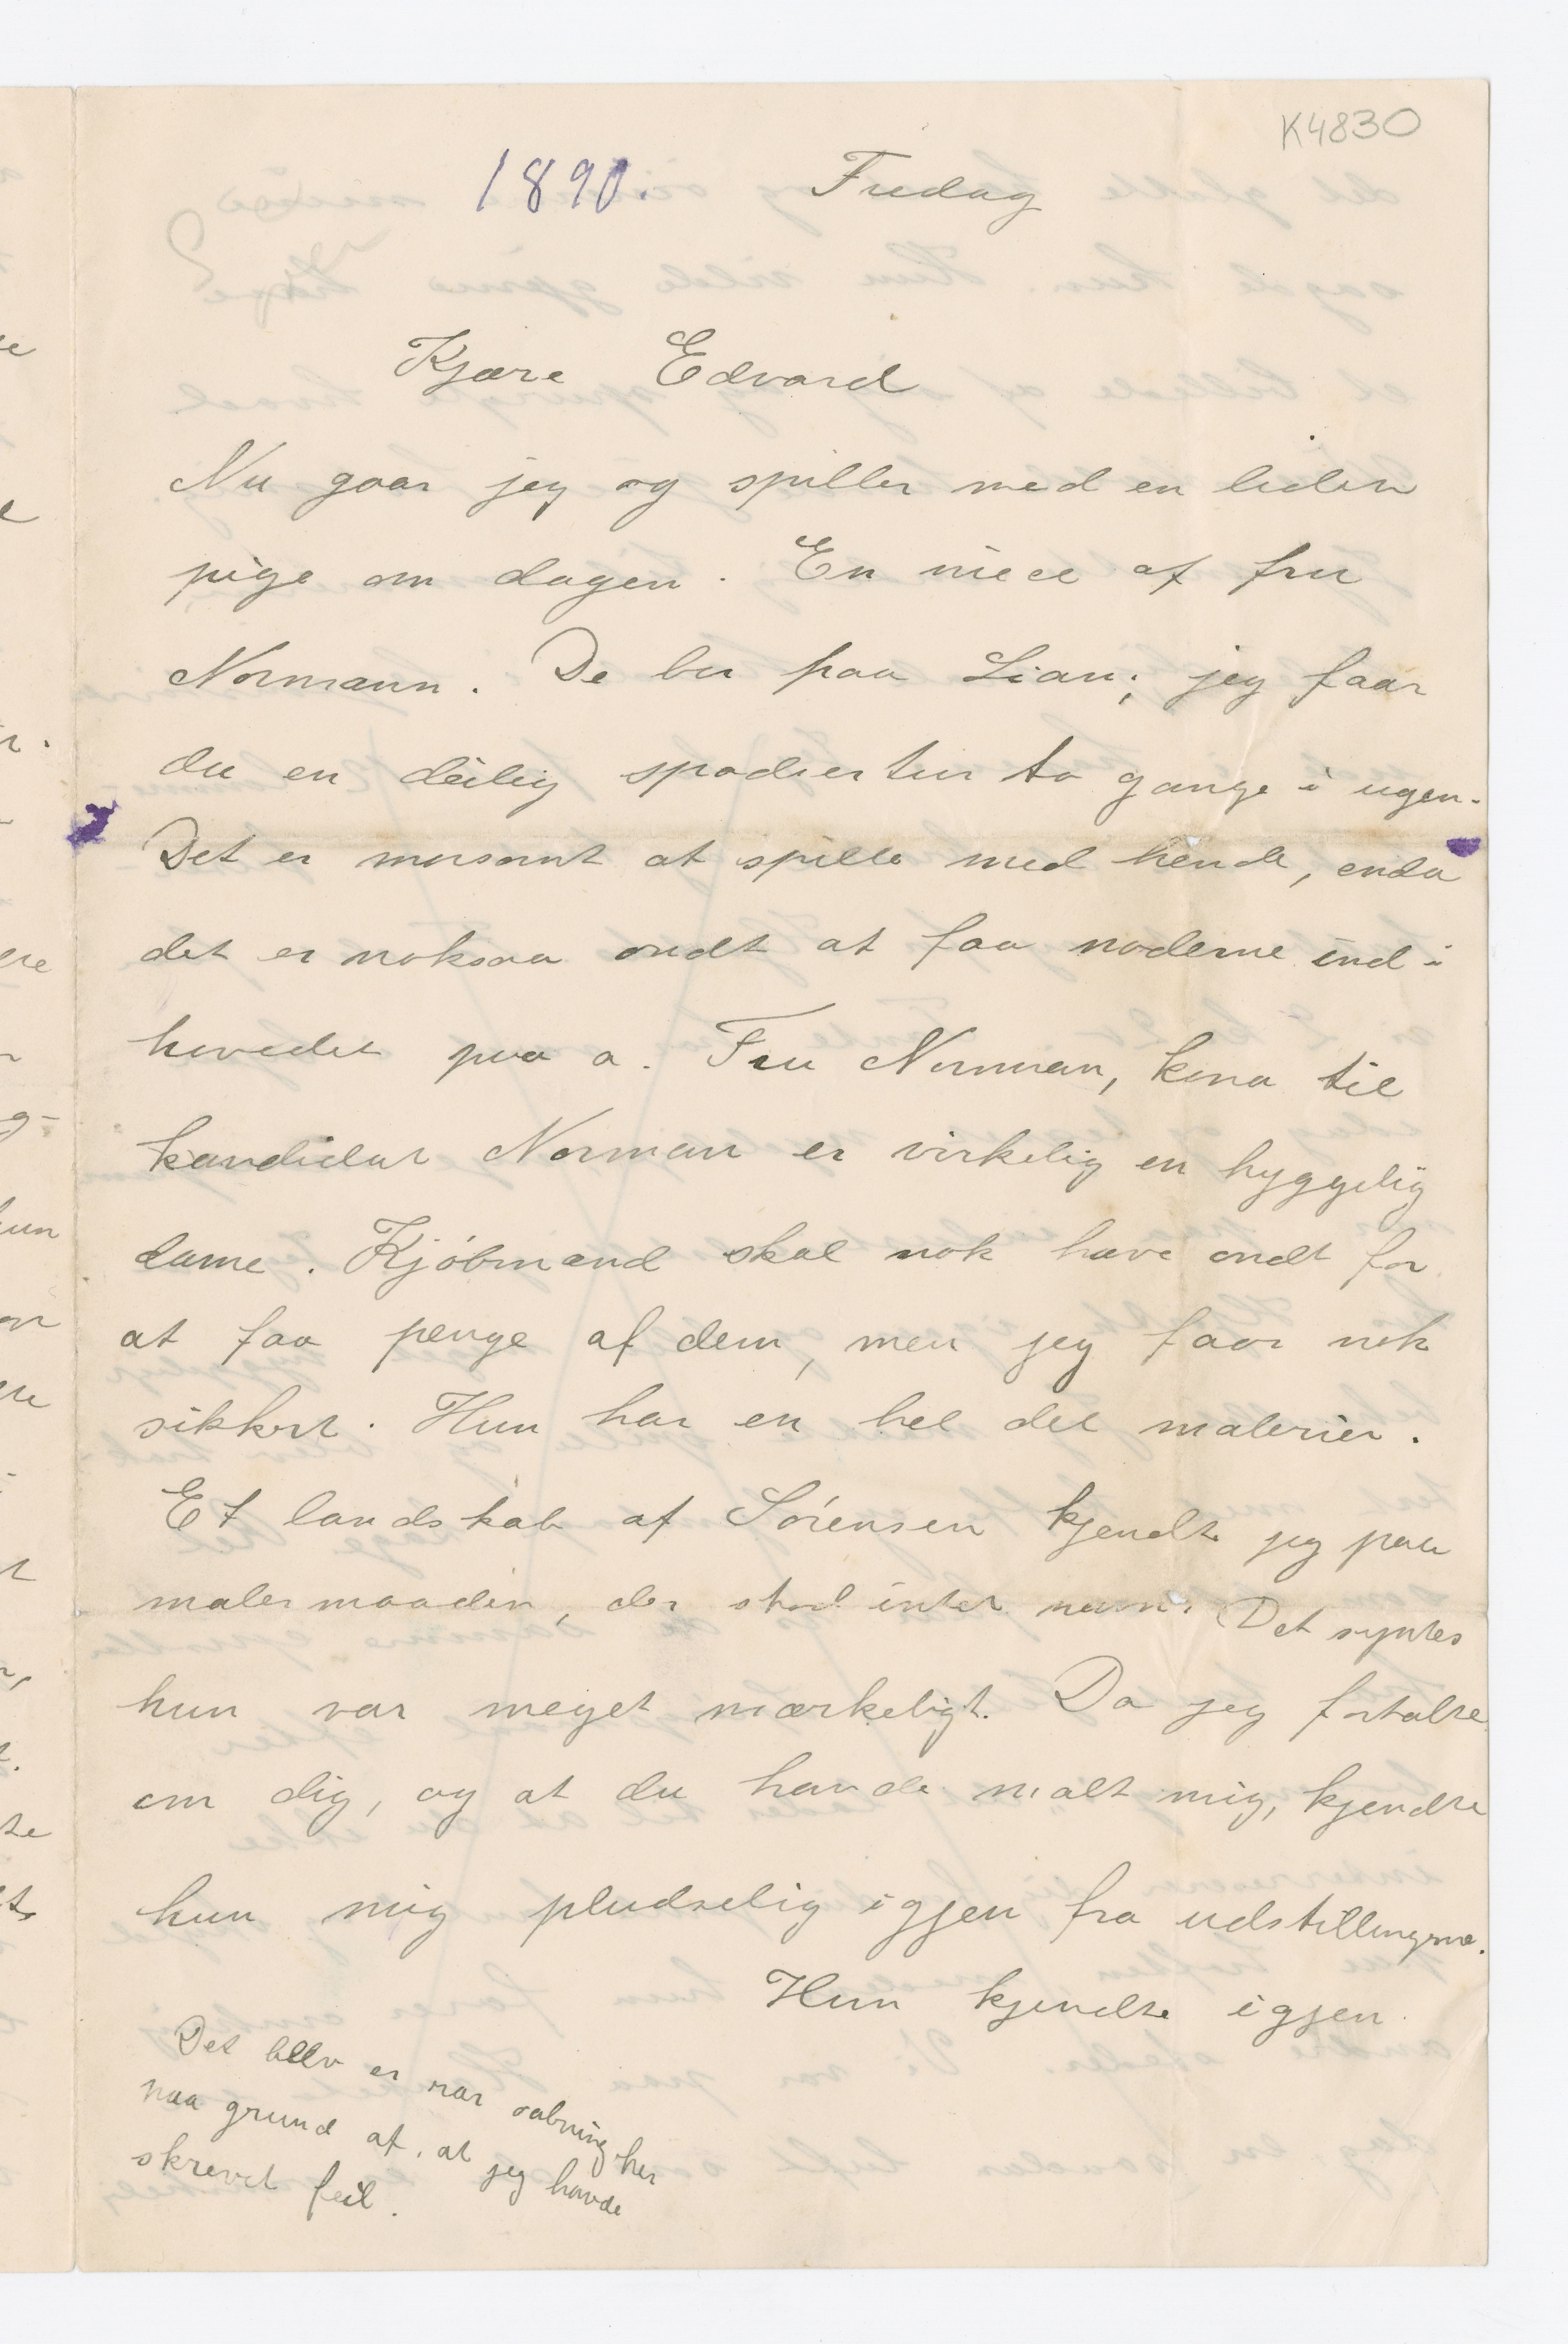 K4830
1890. Fredag
Kjære Edvard
Nu gaar jeg og spiller med en liden
pige om dagen. En niece af fru
Normann. De bor paa Lian; jeg faar
du en deilig spadsertur to gange i ugen.
Det er morsomt at spille med hende, enda
det er noksaa ondt at faa noderne ind i
hovedet paa a. Fru Norman, kona til
kandidat Norman er virkelig en hyggelig
dame. Kjøbmænd skal nok have ondt for
at faa penge af dem, men jeg faar nok
sikkert. Hun har en hel del malerier.
Et landskab af Sørensen kjendte jeg paa
malermaaden, der stod intet navn. Det syntes
hun var meget mærkeligt. Da jeg fortalte
om dig, og at du havde malt mig, kjendte
hun mig pludselig igjen fra udstillingerne.
Hun kjendte igjen
Det blev en rar aabning her
paa grund af, at jeg havde
skrevet feil.